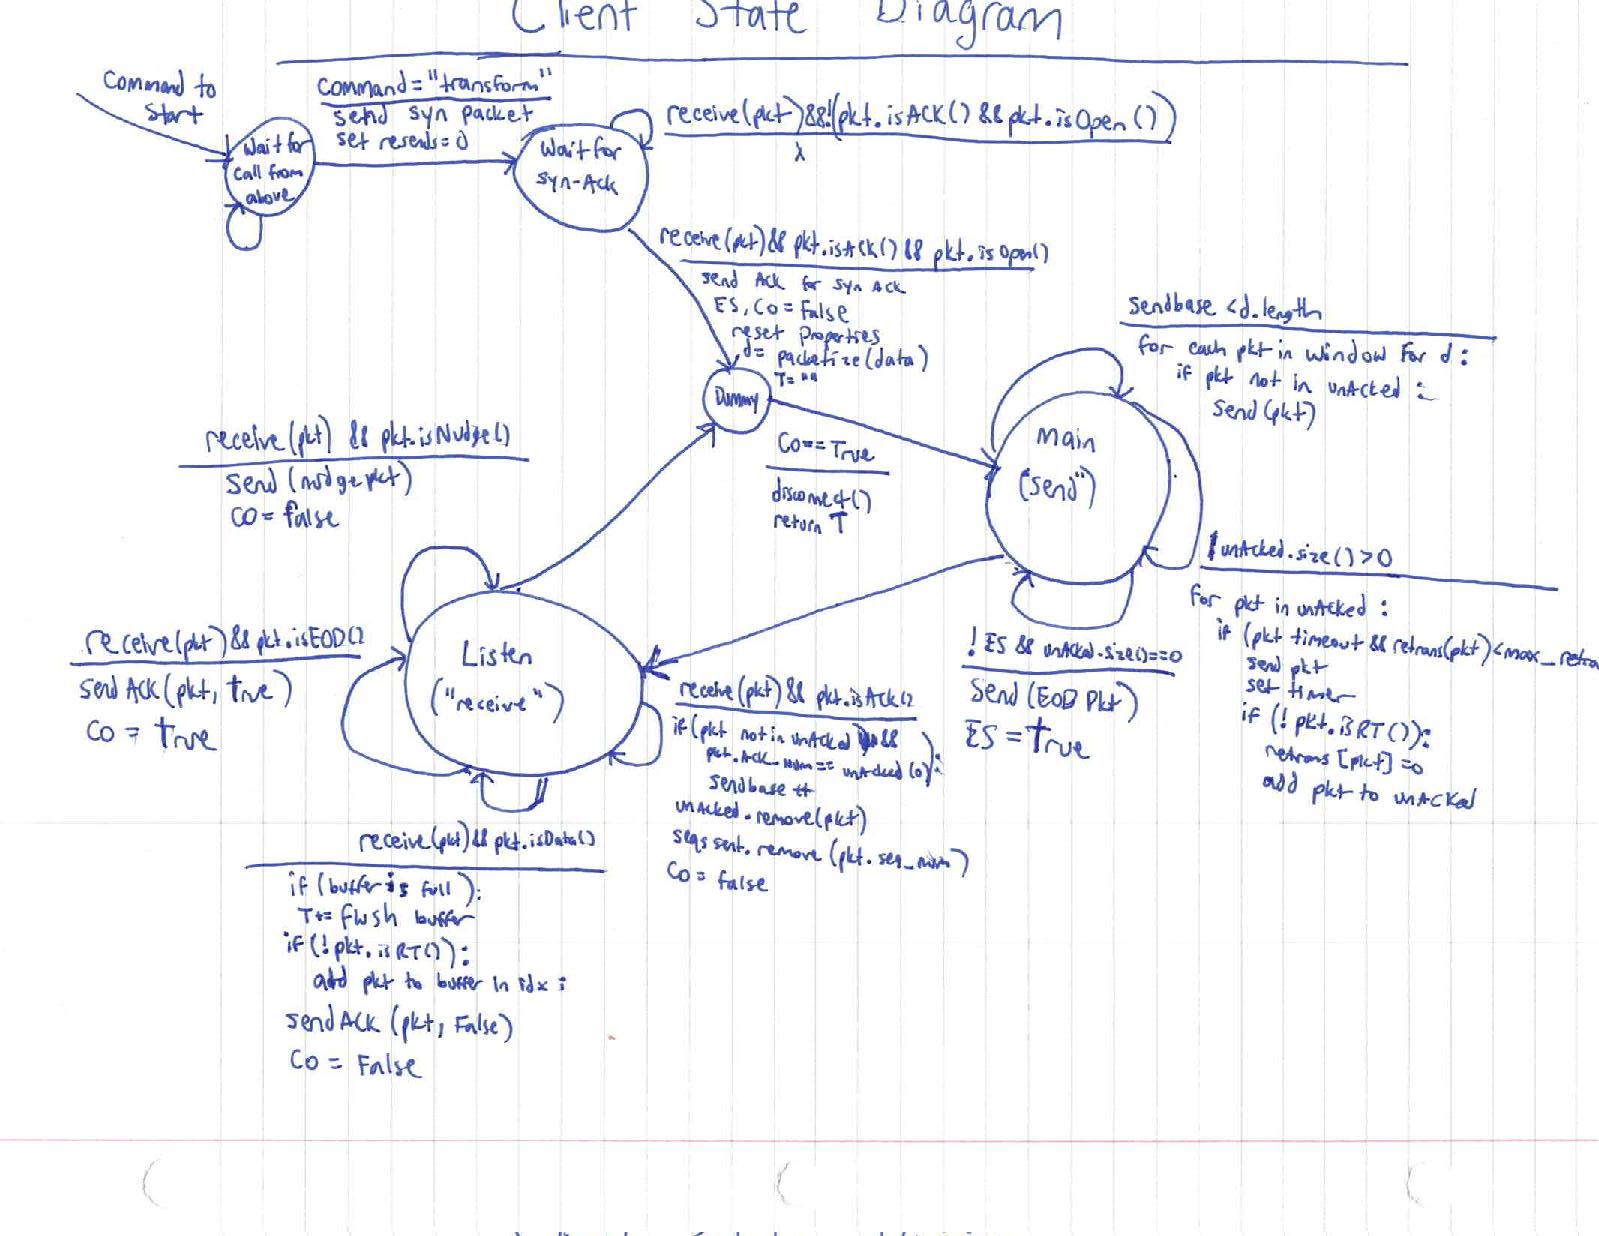 Client State Diagram
Command to
Start
command="transform"
send syn packet
set resends=0
Wait for
call from
above
Wait for
Syn-Ack
receive(pkt)&&!(pkt.isACK() && pkt.isOpen())
λ
receive(pkt)&& pkt.isAck() && pkt.isOpen()
send Ack for Syn Ack
ES, CO = False
reset Properties
d= packetize(data)
T=""
Dummy
CO==True
disconnect()
return T
sendbase <d.length
for each pkt in window for d:
if pkt not in unAcked:
Send(pkt)
Main
("Send")
!unAcked.size()>0
for pkt in unAcked:
if (pkt timeout && retrans(pkt)<max_retra
send pkt
set timer
if (!pkt.isRT()):
retrans[pkt]=0
add pkt to unACKed
!ES && unAcked.size()==0
Send(EOD Pkt)
ES=True
receive(pkt) && pkt.isNudge()
Send(nudge pkt)
CO=false
Listen
("receive")
receive(pkt)&&pkt.isEOD()
Send ACK(pkt, true)
CO = True
receive(pkt)&& pkt.isAck()
if(pkt not in unAcked &&
pkt.Ack_Num== unAcked(0)):
sendbase++
unAcked.remove(pkt)
seqs sent.remove(pkt.seq_num)
CO=false
receive(pkt)&&pkt.isData()
if(buffer is full):
T+= flush buffer
if(!pkt.isRT()):
add pkt to buffer in idx i
Send ACK(pkt, False)
CO = False